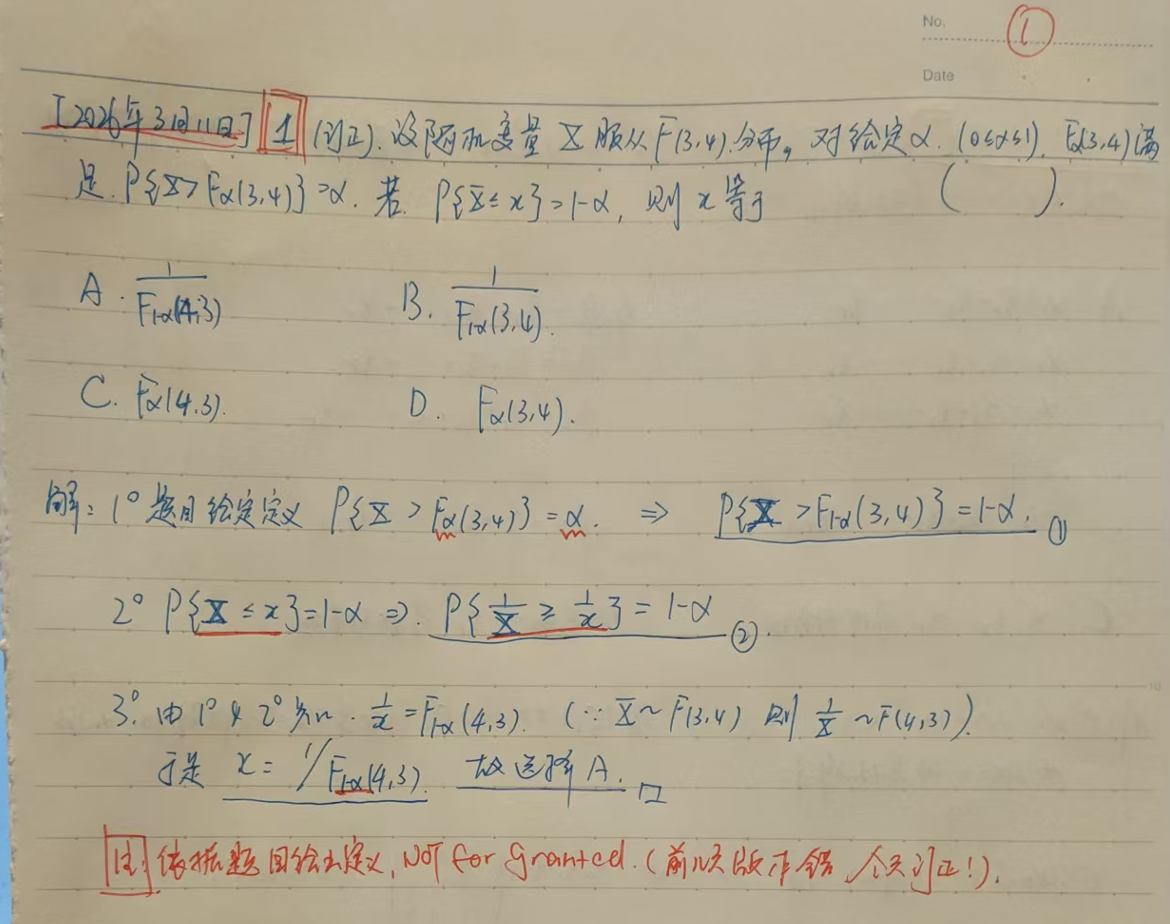 No. ①
Date
[2026年3月11日] 1 (订正). 设随机变量 X 服从 F(3,4) 分布。对给定α. (0≤α≤1). Fα(3,4)满
足. P{X>Fα(3,4)}=α. 若. P{X≤x}=1-α, 则 x 等于 ( ).
A. 1/F1-α(4,3) B. 1/F1-α(3,4).
C. Fα(4.3). D. Fα(3,4).
解: 1° 题目给定定义 P{X>Fα(3,4)}=α. ⇒ P{X>F1-α(3,4)}=1-α. ①
2° P{X≤x}=1-α ⇒. P{1/X ≥ 1/x}=1-α ②.
3°. 由 1° & 2° 知. 1/x=F1-α(4,3). (∵ X~F(3,4) 则 1/X ~F(4,3)).
于是 x= 1/F1-α(4,3). 故选择 A. □
注: 依据题目给出定义, NOT for granted. (前几天版本错, 今天订正!).